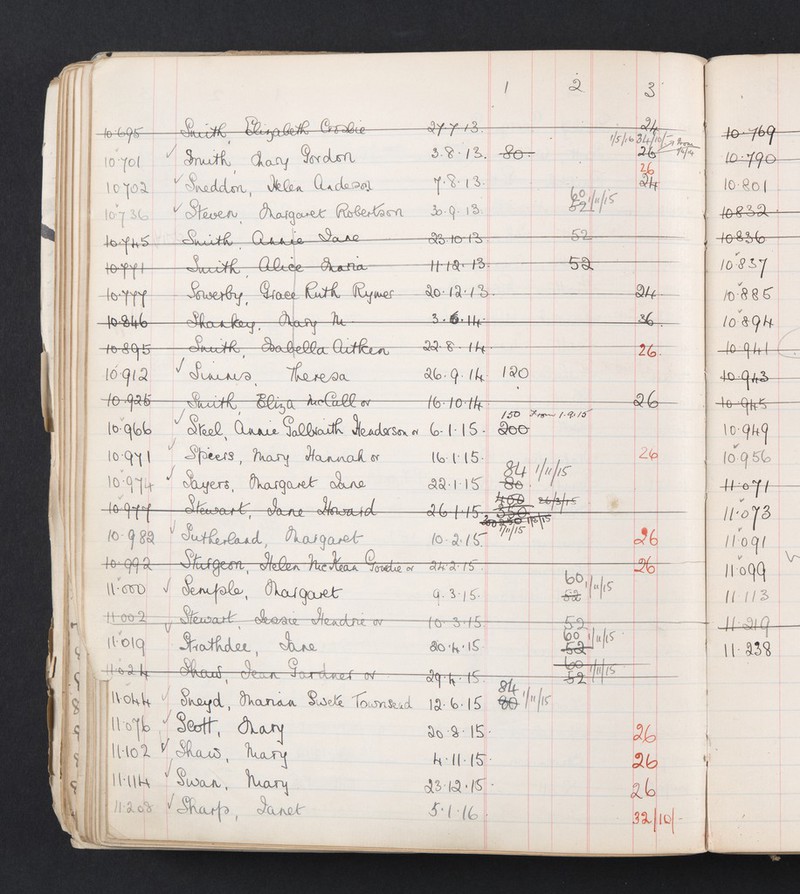 1 2 3
10·695 Smith, Elizabeth Crosbie 27·7·13. 24
10·701 ✓ Smith, Mary Gordon 3·8·13. 80· 26 1/5/16 34/10/-
10702 ✓ Sneddon, Helen Anderson 7·8·13· 26 24
10·736 ✓ Steven, Margaret Robertson 3·9·13 60 1/11/15 52
10·745 Smith, Annie Jane 23·10·13 52
10·771 Smith, Alice Maria 11·12·13· 52
10·777 Sowerby, Grace Ruth Rymer 20·12·13. 24
10·846 Shankey, Mary M 3·6·14· 36.
10·895 Smith, Isabella Aitken 22·8·14· 26.
10·912 ✓ Simms, Theresa 26·9·14· 120
10·925 Smith, Eliza McCall or 16·10·14· 26
10·966 ✓ Steel, Annie Galbraith Henderson or 6·1·15· 150 From 1·9·15 200
10·971 ✓ Speers, Mary Hannah or 16·1·15· 26
10·974 ✓ Sayers, Margaret Jane 22·1·15 84 1/11/15 80
10·977 Stewart, Jane Howard 26·1·15· 400 26/3/15 350 1/11/15
10·982 ✓ Sutherland, Margaret 10·2·15. 26
10·992 Sturgeon, Helen McKean Gowdie or 24·2·15. 26
11·000 ✓ Semple, Margaret 9·3·15· 60 1/11/15 52
11·002 Stewart, Jessie Hendrie or 10·3·15· 52
11·019 ✓ Strathdee, Jane 30·4·15· 60 1/11/15 52
11·024 Shaw, Jean Gardner or 29·4·15. 60 1/11/15 52
11·044 ✓ Sneyd, Marian Swete Townsend 12·6·15 84 1/11/15 80
11·076 ✓ Scott, Mary 20·8·15· 26
11·102 ✓ Shaw, Mary 4·11·15· 26
11·114 ✓ Swan, Mary 23·12·15· 26
11·208 ✓ Sharp, Janet 5·1·16 32/10/-
10·769
10·790
10·801
10832
10836
10·837
10·885
10·894
10·941
10·943
10·945
10·949
10·956
11·071
11·073
11·091
11·099
11·113
11·219
11·238